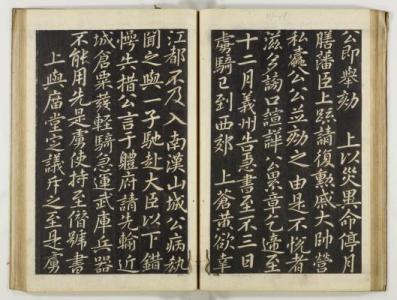 公即舉劾 上以災異命停月
膳藩臣上疏請復勳戚大帥營
私贏公公並劾之由是不悅者
滋多謗口諠譁公累章乞遞至
十二月義州告急書至不三日
虜騎已到西郊 上蒼黃欲幸
江都不及入南漢山城公病劫
聞之與一子馳赴大臣以下錯
愕失措公言于體府請先輸近
城倉粟發輕騎急運武庫兵器
不能用先是虜使持至僭號書
上與廟堂定議斥之至是虜